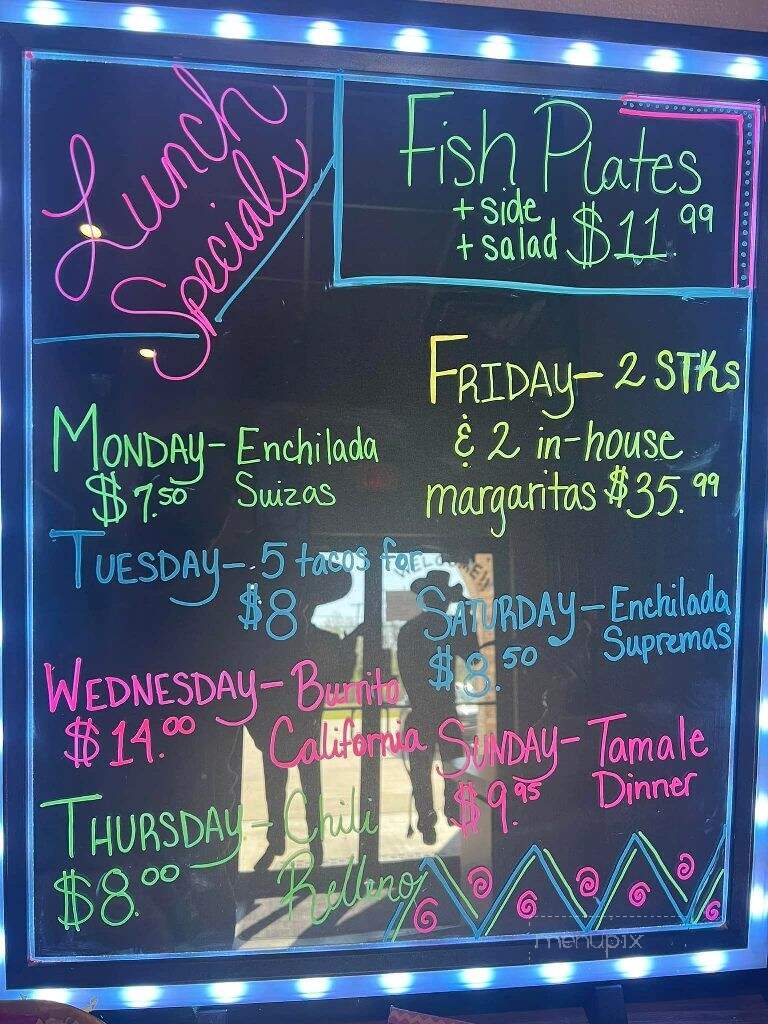 Lunch
Specials
Fish Plates
+ side
+ salad $11.99
MONDAY- Enchilada
$7.50 Suizas
TUESDAY- 5 tacos for
$8
WEDNESDAY- Burrito
$14.00 California
THURSDAY- Chili
$8.00 Relleno
FRIDAY- 2 STKs
& 2 in-house
margaritas $35.99
SATURDAY- Enchilada
$8.50 Supremas
SUNDAY- Tamale
$9.95 Dinner
menupix